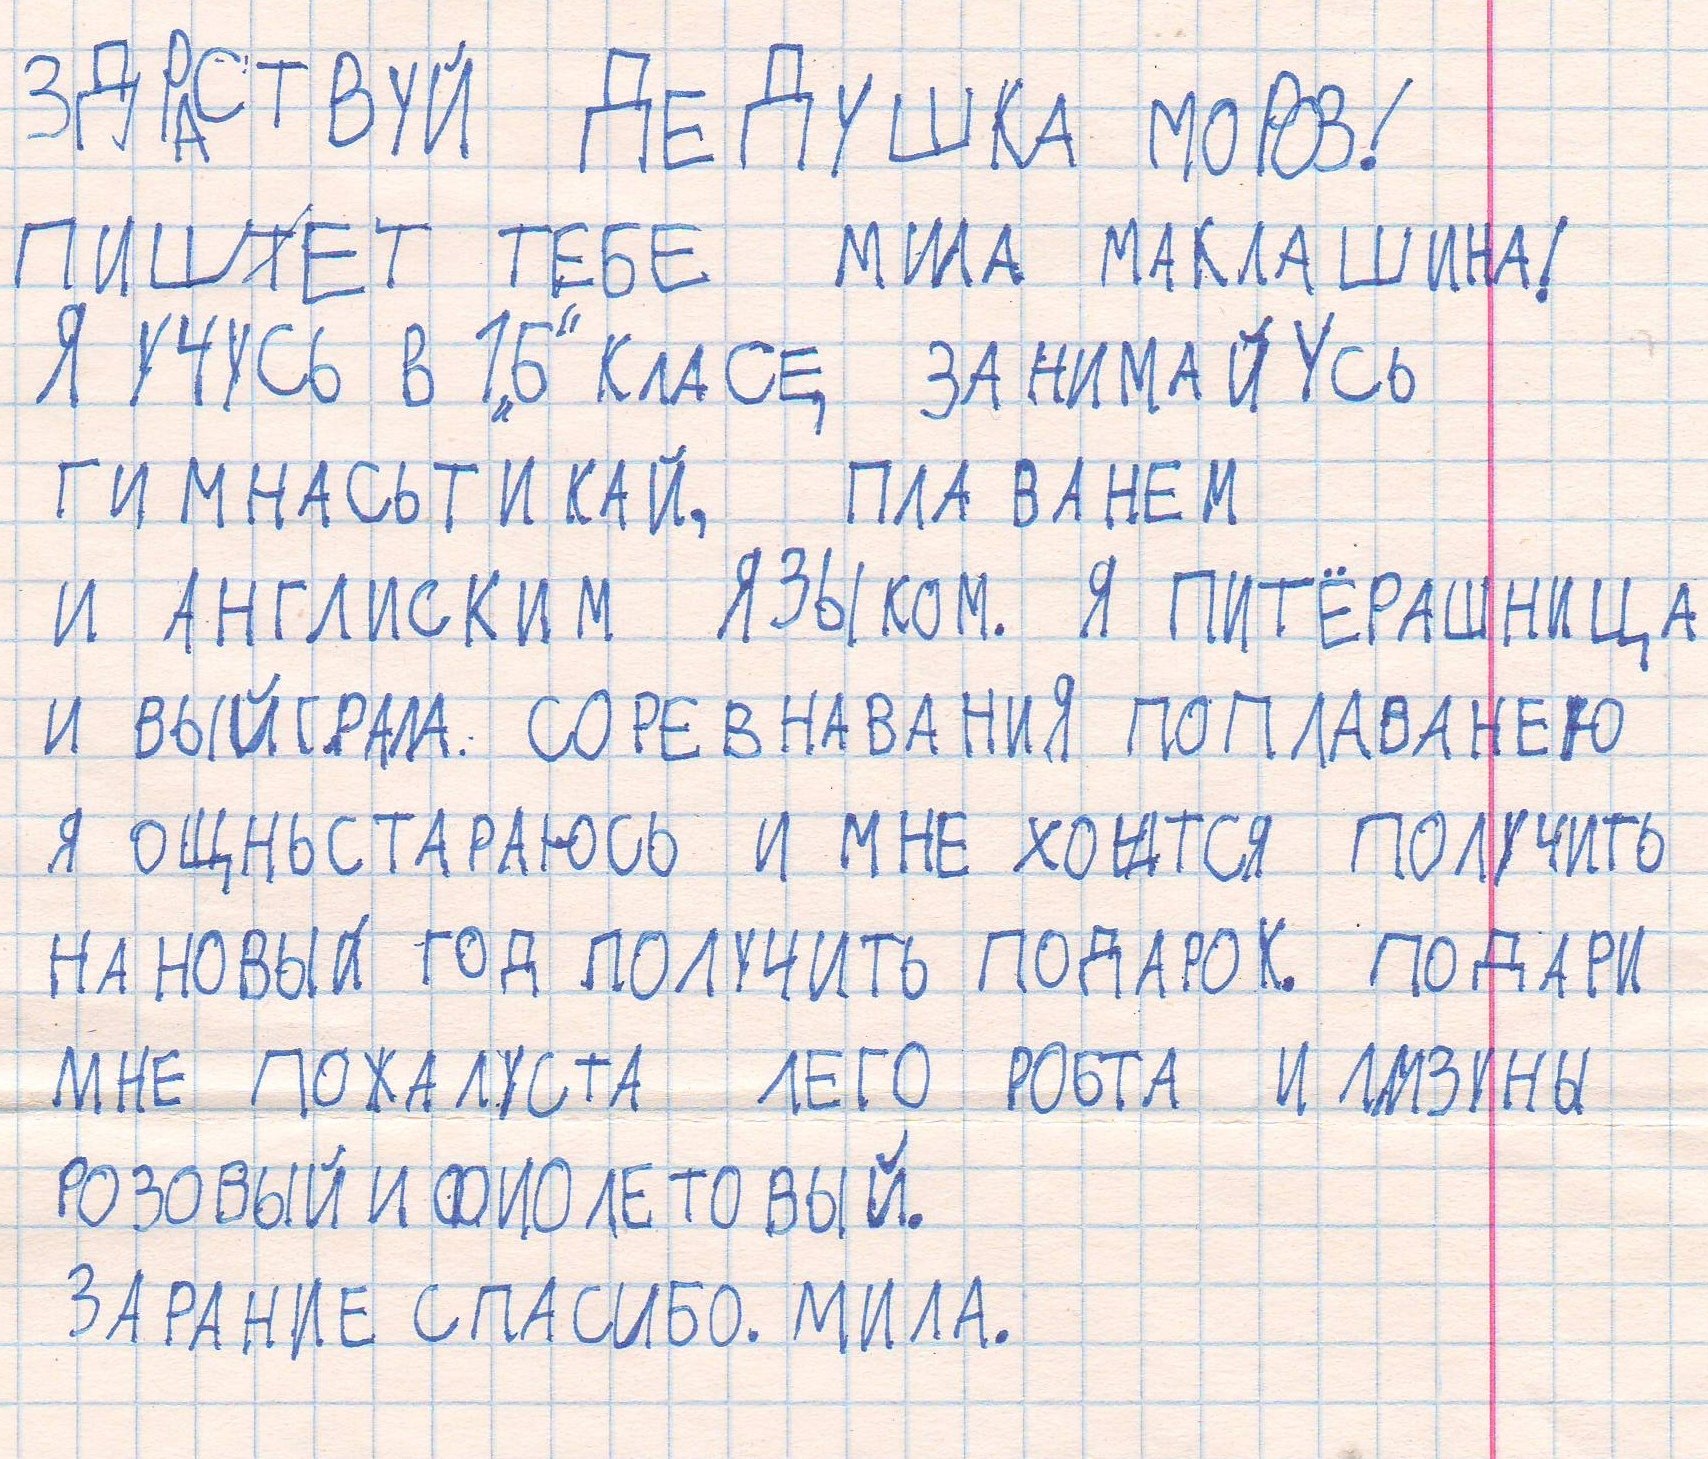 ЗДРАСТВУЙ ДЕДУШКА МОРОЗ!
ПИШЕТ ТЕБЕ МИЛА МАКЛАШИНА!
Я УЧУСЬ В 1„Б“ КЛАСЕ, ЗАНИМАЙУСЬ
ГИМНАСЬТИКАЙ, ПЛАВАНЕМ
И АНГЛИСКИМ ЯЗЫКОМ. Я ПИТЁРАШНИЦА
И ВЫЙГРАЛА. СОРЕВНАВАНИЯ ПОПЛАВАНЕЮ
Я ОЩНЬСТАРАЮСЬ И МНЕ ПОЛУЧИТЬ
НА НОВЫЙ ГОД ПОЛУЧИТЬ ПОДАРОК. ПОДАРИ
МНЕ ПОЖАЛУСТА ЛЕГО РОБТА И ЛИЗУНЫ
РОЗОВЫЙ И ФИОЛЕТОВЫЙ.
ЗАРАНИЕ СПАСИБО. МИЛА.